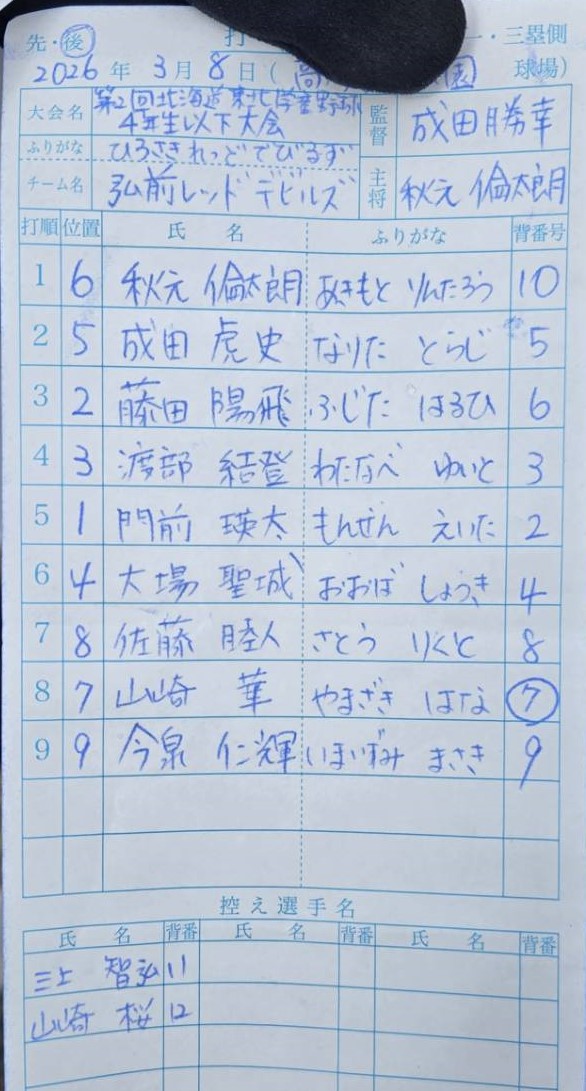 先・後 打 ・三塁側
2026年 3月 8日( 高 園 球場)
大会名 第2回北海道東北学童野球 4年生以下大会 監督 成田勝幸
ふりがな ひろさきれっどでびるず
チーム名 弘前レッドデビルズ 主将 秋元 倫太朗
打順 位置 氏名 ふりがな 背番号
1 6 秋元 倫太朗 あきもと りんたろう 10
2 5 成田 虎史 なりた とらじ 5
3 2 藤田 陽飛 ふじた はるひ 6
4 3 渡部 結登 わたなべ ゆいと 3
5 1 門前 瑛太 もんぜん えいた 2
6 4 大場 聖城 おおば しょうき 4
7 8 佐藤 睦人 さとう りくと 8
8 7 山崎 華 やまざき はな 7
9 9 今泉 仁輝 いまいずみ まさき 9
控え選手名
氏名 背番 氏名 背番 氏名 背番
三上 智弘 11
山崎 桜 12